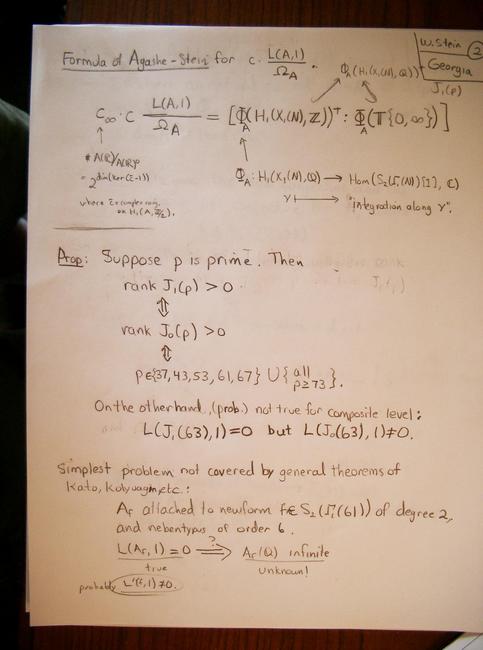 W. Stein ②
Georgia
J₁(p)
Formula of Agashe-Stein for c · L(A,1)/Ω_A .
Φ_A(H₁(X₁(N),ℚ))
C_∞ · C L(A,1)/Ω_A = [Φ_A(H₁(X₁(N),ℤ))⁺ : Φ_A(𝕋{0,∞})]
Φ_A : H₁(X₁(N),ℚ) → Hom(S₂(Γ₁(N))[I], ℂ)
γ ↦ "integration along γ".
on H₁(A,
Prop: Suppose p is prime. Then
rank J₁(p) > 0
⇕
rank J₀(p) > 0
⇕
p∈{37,43,53,61,67} ∪ {all p≥73}.
On the otherhand, (prob.) not true for composite level:
L(J₁(63),1)=0 but L(J₀(63),1)≠0.
Simplest problem not covered by general theorems of
Kato, Kolyvagin, etc.:
A_f attached to newform f∈S₂(Γ₁(61)) of degree 2,
and nebentypus of order 6.
L(A_f,1)=0 ⟹? A_f(ℚ) infinite
true unknown!
probably L'(f,1)≠0.